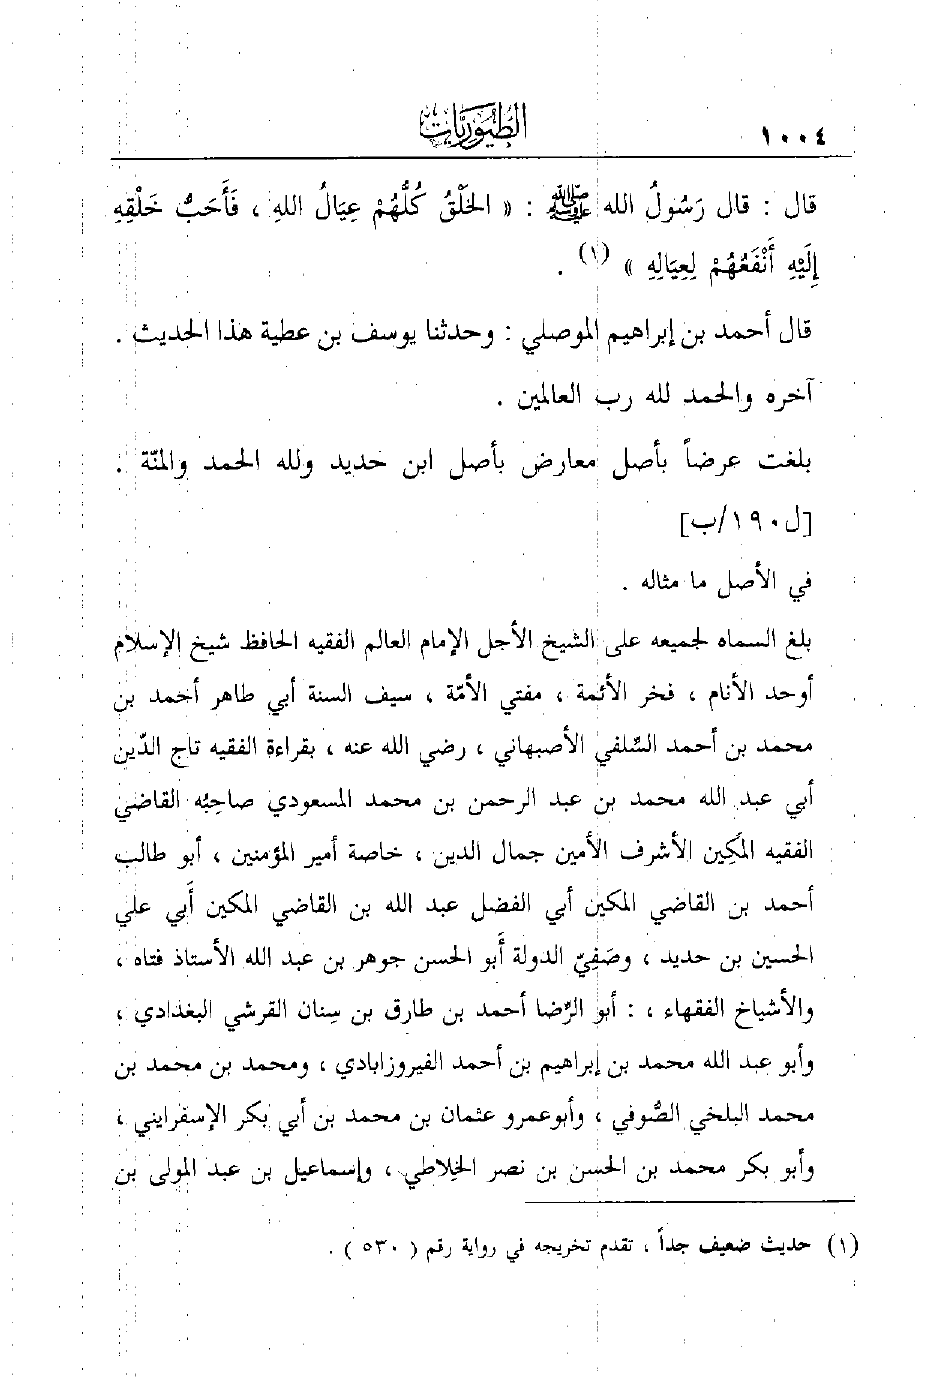 ١٠٠٤ الطيوريات
قال : قال رَسُولُ الله ﷺ : « الخَلْقُ كُلُّهُمْ عِيَالُ اللهِ ، فَأَحَبُّ خَلْقِهِ
إِلَيْهِ أَنْفَعُهُمْ لِعِيَالِهِ » (١) .
قال أحمد بن إبراهيم الموصلي : وحدثنا يوسف بن عطية هذا الحديث .
آخره والحمد لله رب العالمين .
بلغت عرضاً بأصل معارض بأصل ابن حديد ولله الحمد والمنّة .
[ل١٩٠/ب]
في الأصل ما مثاله .
بلغ السماه لجميعه على الشيخ الأجل الإمام العالم الفقيه الحافظ شيخ الإسلام
أوحد الأنام ، فخر الأئمة ، مفتي الأمّة ، سيف السنة أبي طاهر أحمد بن
محمد بن أحمد السِّلفي الأصبهاني ، رضي الله عنه ، بقراءة الفقيه تاج الدّين
أبي عبد الله محمد بن عبد الرحمن بن محمد المسعودي صاحبُه القاضي
الفقيه المكِين الأشرف الأمين جمال الدين ، خاصة أمير المؤمنين ، أبو طالب
أحمد بن القاضي المكين أبي الفضل عبد الله بن القاضي المكين أَبي علي
الحسين بن حديد ، وصَفِيّ الدولة أَبو الحسن جوهر بن عبد الله الأستاذ فتاه ،
والأشياخ الفقهاء ، : أبو الرِّضا أحمد بن طارق بن سِنان القرشي البغدادي ،
وأبو عبد الله محمد بن إبراهيم بن أحمد الفيروزابادي ، ومحمد بن محمد بن
محمد البلخي الصُّوفي ، وأبوعمرو عثمان بن محمد بن أبي بكر الإسفرايني ،
وأبو بكر محمد بن الحسن بن نصر الخِلاطي ، وإسماعيل بن عبد المولى بن
(١) حديث ضعيف جداً ، تقدم تخريجه في رواية رقم ( ٥٣٠ ) .